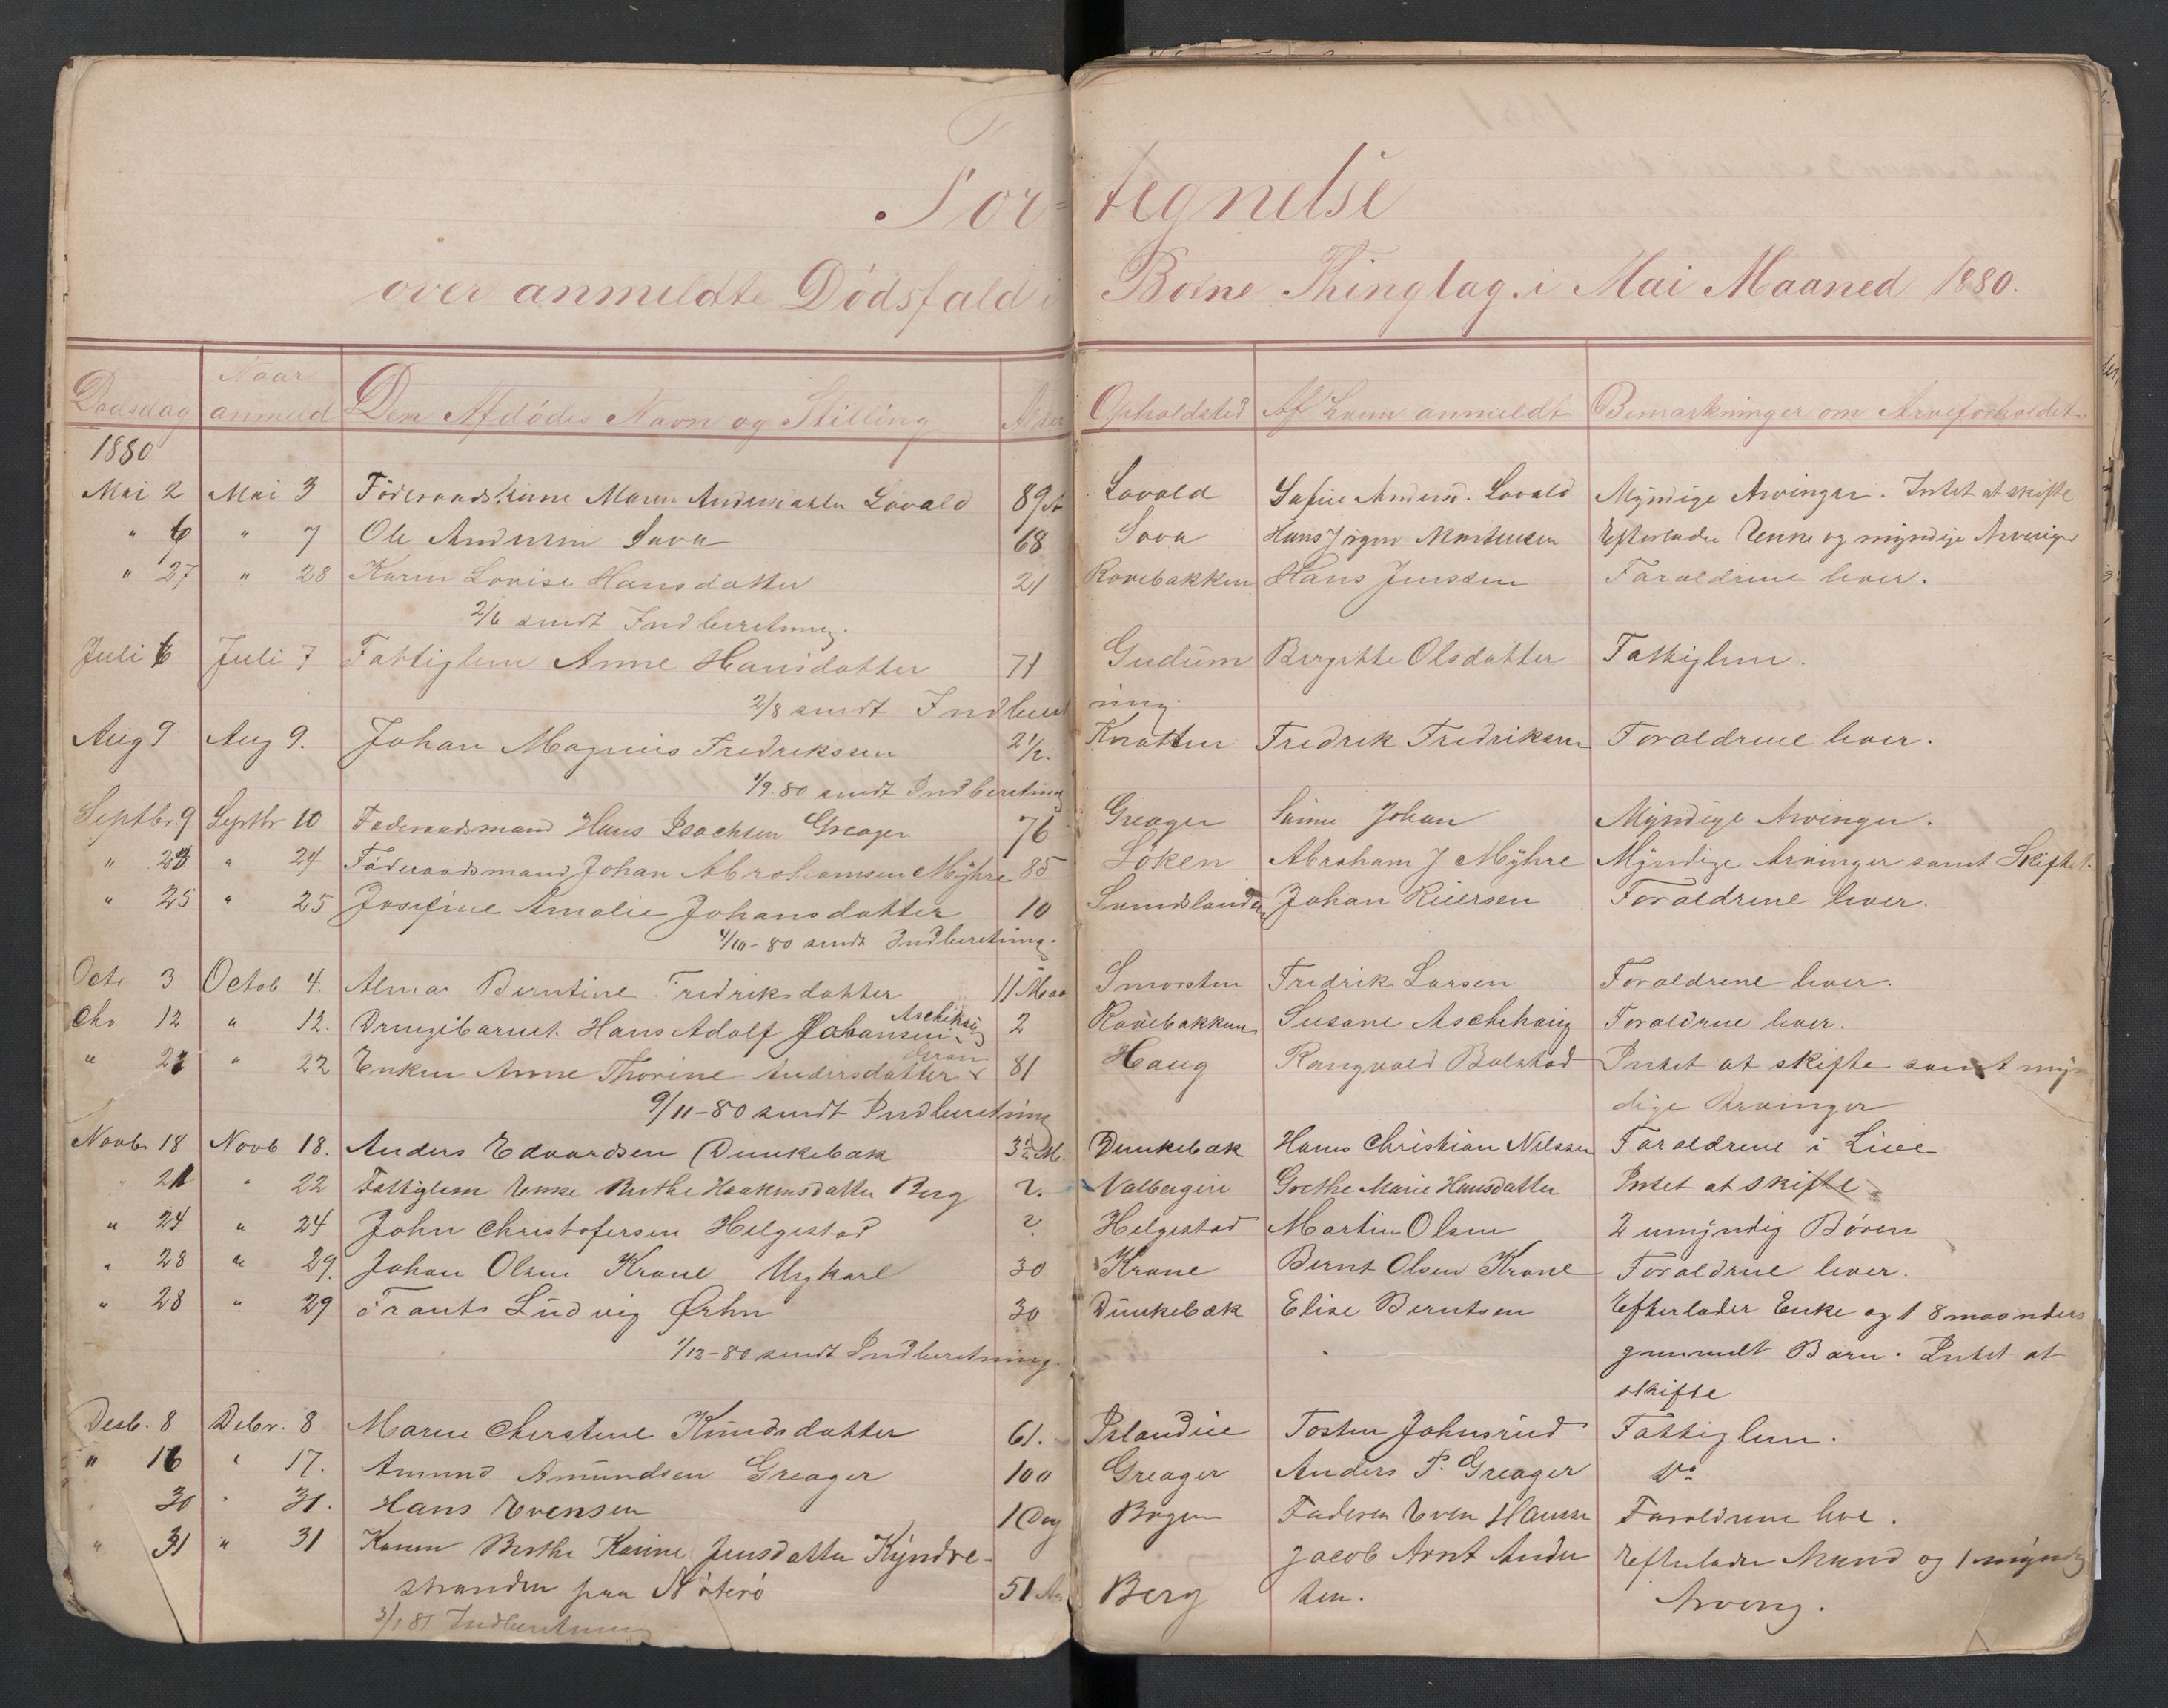 For= tegnelse
over anmeldte Dødsfald i Borre Thinglag. i Mai Maaned 1880.
Dødsdag Naar anmeld Den Afdødes Navn og Stilling Alder Opholdsted Af hvem anmeldt Bemærkninger om Arveforholdet
1880
Mai 2 Mai 3 Föderaadskone Maren Andersdatter Lovald 89 Lovald Anders. Lovald Myndige Arvinger. Intet at skifte
" 6 " 7 Ole Andersen Sova 68 Sova Hans Jrgen Martinsen Efterlader Enke og myndige Arvinger
" 27 " 28 Karen Lovise Hansdatter 21 Rovebakken Hans Jenssen Foraeldrene lever.
2/6 sendt Indberetning.
Juli 6 Juli 7 Fattiglem Anne Hansdatter 71 Gudum Birgitte Olsdatter Fattiglem.
2/8 sendt Indberet ning.
Aug 9 Aug 9. Johan Magnus Fredriksen 2 1/2. Knatten Fredrik Fredriksen Foraeldrene lever.
1/9.80 sendt Indberetning
Septbr. 9 Septbr 10 Föderaadsmand Hans Isachsen Greager 76 Greager Sönnen Johan Myndige Arvinger.
" 23 " 24 Föderaadsmand Johan Abrahamsen Myhre 85 Löken Abraham J Myhre Myndige Arvinger samt Skiftet.
" 25 " 25 Josefine Amalie Johansdatter 10 Johan Riersen Foraeldrene lever.
4/10-80 sendt Indberetning.
Octr 3 Octob 4. Alma Berntine Fredriksdatter 11 Maa Smorsten Fredrik Larsen Foraeldrene lever.
12 " 12. Drengebarnet Hans Adolf Johansen 2 Rovebakken Susane Aschehaug Foraeldrene lever.
" 21 " 22 Enken Anne Thorine Andersdatter 81 Haug Rangvald Bolstad Intet at skifte samt myn
dige Arvinger
9/11-80 sendt Indberetning
Novbr 18 Novb 18. Anders Edvardsen Dunkebæk Dunkebæk Hans Christian Nilssen Foraeldrene i Live
" 21 " 22 Fattiglem Enke Berthe Haakensdatter Berg ?. Valbergin Grethe Marie Hansdatter Intet at skifte
" 24 " 24 John Christofersen Helgestad ? Helgestad Martin Olsen 2 umyndig Bören
" 28 " 29. Johan Olsen Krane Ungkarl 30 Krane Bernt Olsen Krane Foraeldrene lever.
" 28 " 29 Frants Ludvig Ørhn 30 Dunkebæk Elise Berntsen Efterlader Enke og 1 8 maaneders
gammelt Barn. Intet at
skifte
1/12-80 sendt Indberetning.
Desb. 8 Debr. 8 Maren Kerstine Knudsdatter 61. Tosten Johnsrud Fattiglem.
" 16 " 17. Amund Amundsen Greager 100 Greager Anders P. Greager Do
" 30 " 31. Hans Evensen 1 Dag Bogen Faderen Even Hansen Foraeldrene leve.
" 31 " 31 Konen Berthe Karine Jensdatter Kyndre-
stranden paa Nøterö 51 Aar Berg Jacob Arnt Ander
sen. Efterlader Mand og 1 myndig
Arving.
3/1 81 Indberetning